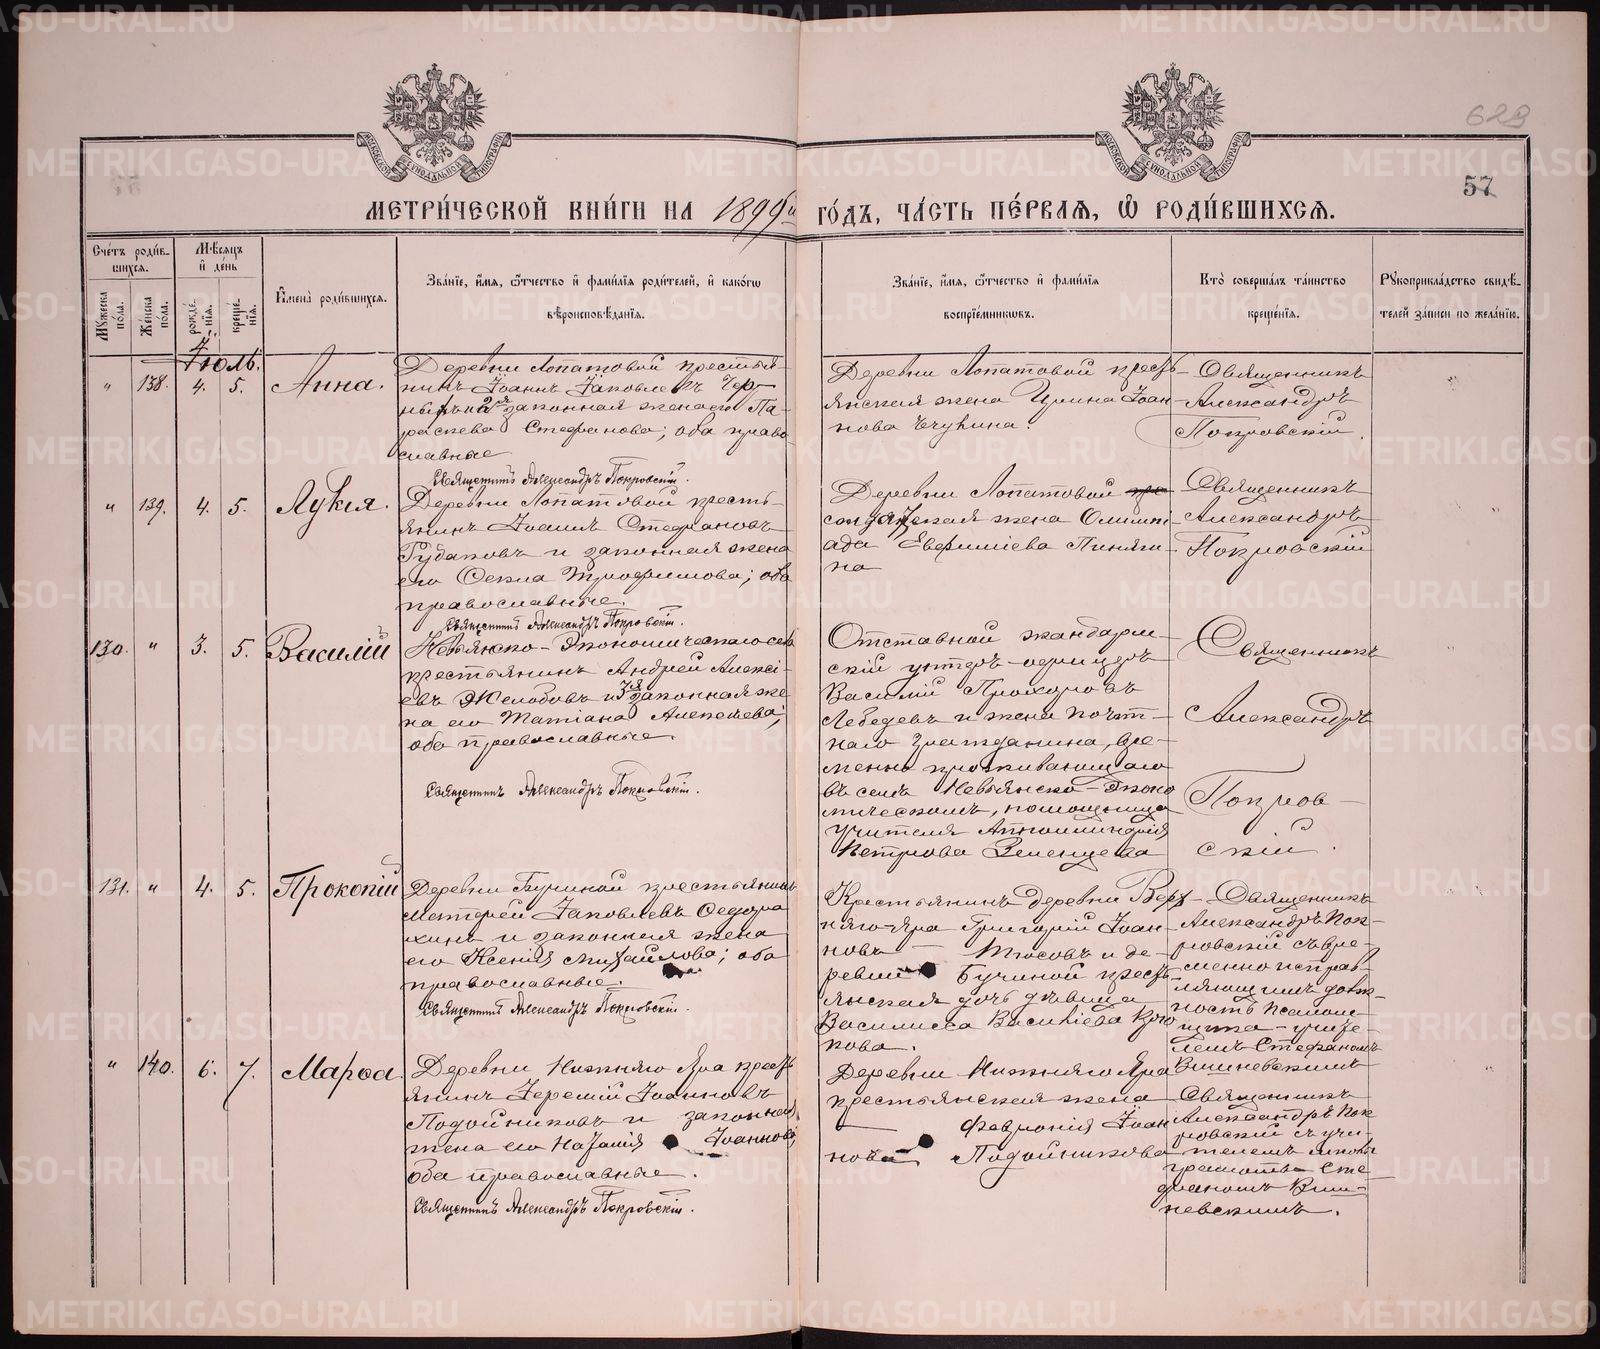 628
57
МЕТРИ́ЧЕСКОЙ КНИ́ГИ НА 1899й ГО́ДЪ, ЧА́СТЬ ПЕ́РВАЯ, Ѿ РОДИ́ВШИХСЯ.
Сче́тъ роди́вшихся.
Мѣ́сяцъ и҆ де́нь
Му́жеска по́ла.
Же́нска по́ла.
рожде́нїя.
креще́нїя.
И҆мена̀ роди́вшихся.
Зва́нїе, и҆́мя, ѻ҆́тчество и҆ фами́лїя роди́телей, и҆ како́гѡ вѣроисповѣ́данїя.
Зва́нїе, и҆́мя, ѻ҆́тчество и҆ фами́лїя воспрїе́мниковъ.
Кто̀ соверша́лъ та́инство креще́нїя.
Рукоприкла́дство свидѣ́телей за́писи по жела́нїю.
Іюль.
" 138. 4. 5. Анна.
Деревни Лопатовой крестья-
нинъ Іоаннъ Іаковлевъ
2я законная жена его Па-
раскева Стефанова; оба право-
славные
Священникъ Александръ Покровскій.
Деревни Лопатовой кресть-
янская жена Ирина Іоан-
нова
Священникъ
Александръ
Покровскій.
" 139. 4. 5. Лукія.
Деревни Лопатовой кресть-
янинъ Стефановъ
и законная жена
его Секла Трофимова; оба
православные.
Священникъ Александръ Покровскій.
Деревни Лопатовой
солдатская жена Олимпі-
ада Евфиміева Пиняги-
на
Священникъ
Александръ
Покровскій
130. " 3. 5. Василій
Невьянско-Экономическаго села
крестьянинъ Андрей Алексі-
евъ Желобовъ и 3я законная же-
на его Татіана Алексіева;
оба православные.
Священникъ Александръ Покровскій.
Отставной жандарм-
скій унтеръ-офицеръ
Василій Прохоровъ
Лебедевъ и жена почт-
наго гражданина, вре-
менно проживающаго
въ селѣ Невьянско-Эконо-
мическомъ, помощника
учителя
Петрова Зеленцева
Священникъ
Александръ
Покров-
скій.
131. " 4. 5. Прокопій
Деревни Бучиной крестьянинъ
Іаковлевъ
и законная жена
его Ксенія Михайлова; оба
православные.
Священникъ Александръ Покровскій.
Крестьянинъ деревни Верх-
няго-Яра Григорій Іоан-
новъ Тюсовъ и де-
ревни Бучиной кресть-
янская дочь дѣвица
Василиса Василіева
Священникъ
Александръ Пок-
ровскій съ вре-
менно исправ-
ляющимъ долж-
ность псалом-
щика-учите-
лемъ Стефаномъ
Вишневскимъ
" 140. 6. 7. Марѳа.
Деревни Нижняго Яра кресть-
янинъ Іеремій Іоанновъ
Подойниковъ и законная
жена его Наталія Іоаннова;
оба православные.
Священникъ Александръ Покровскій.
Деревни Нижняго Яра
крестьянская жена
Февронія Іоан-
нова Подойникова
Священникъ
Александръ Пок-
ровскій съ учи-
телемъ школы
грамоты Сте-
фаномъ Виш-
невскимъ.
METRIKI.GASO-URAL.RU